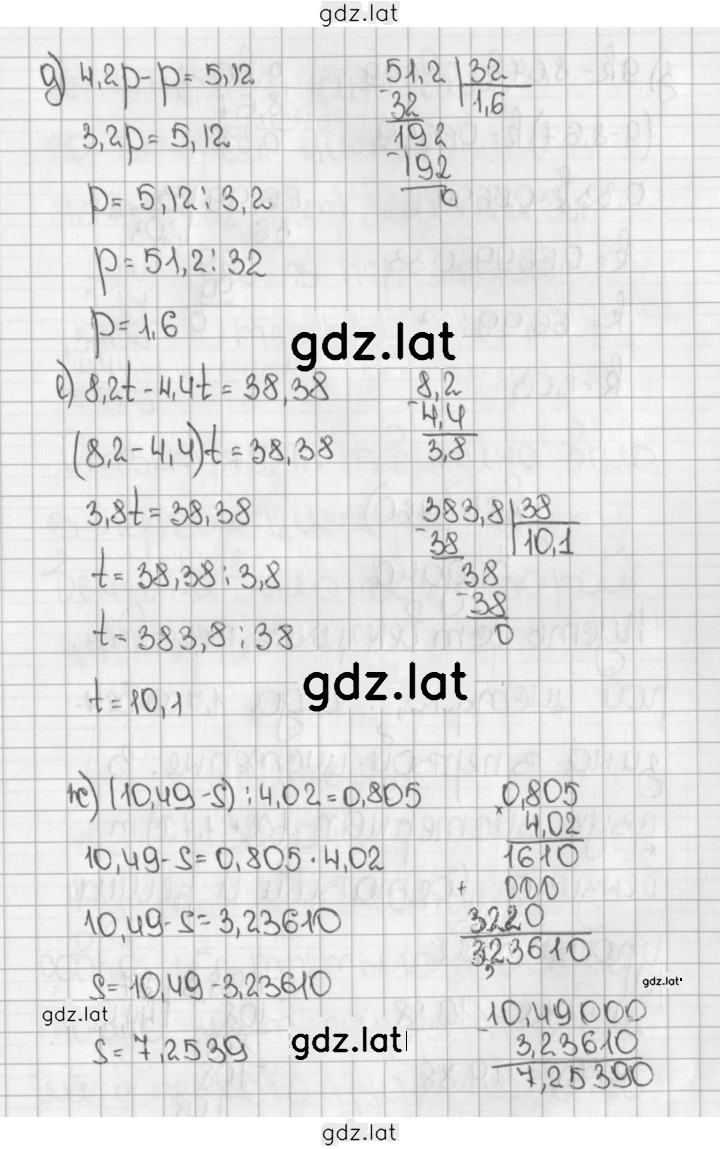 gdz.lat
д) 4,2p - p = 5,12
51,2 | 32
3,2p = 5,12
32 | 1,6
192
p = 5,12 : 3,2
-192
0
p = 51,2 : 32
p = 1,6
gdz.lat
е) 8,2t - 4,4t = 38,38
8,2
-4,4
(8,2 - 4,4)t = 38,38
3,8
3,8t = 38,38
383,8 | 38
-38 | 10,1
t = 38,38 : 3,8
38
-38
t = 383,8 : 38
0
gdz.lat
t = 10,1
ж) (10,49 - s) : 4,02 = 0,805
× 0,805
4,02
10,49 - s = 0,805 · 4,02
1610
+ 000
10,49 - s = 3,23610
3220
3,23610
s = 10,49 - 3,23610
gdz.lat
gdz.lat
10,49000
s = 7,2539
gdz.lat
- 3,23610
7,25390
gdz.lat